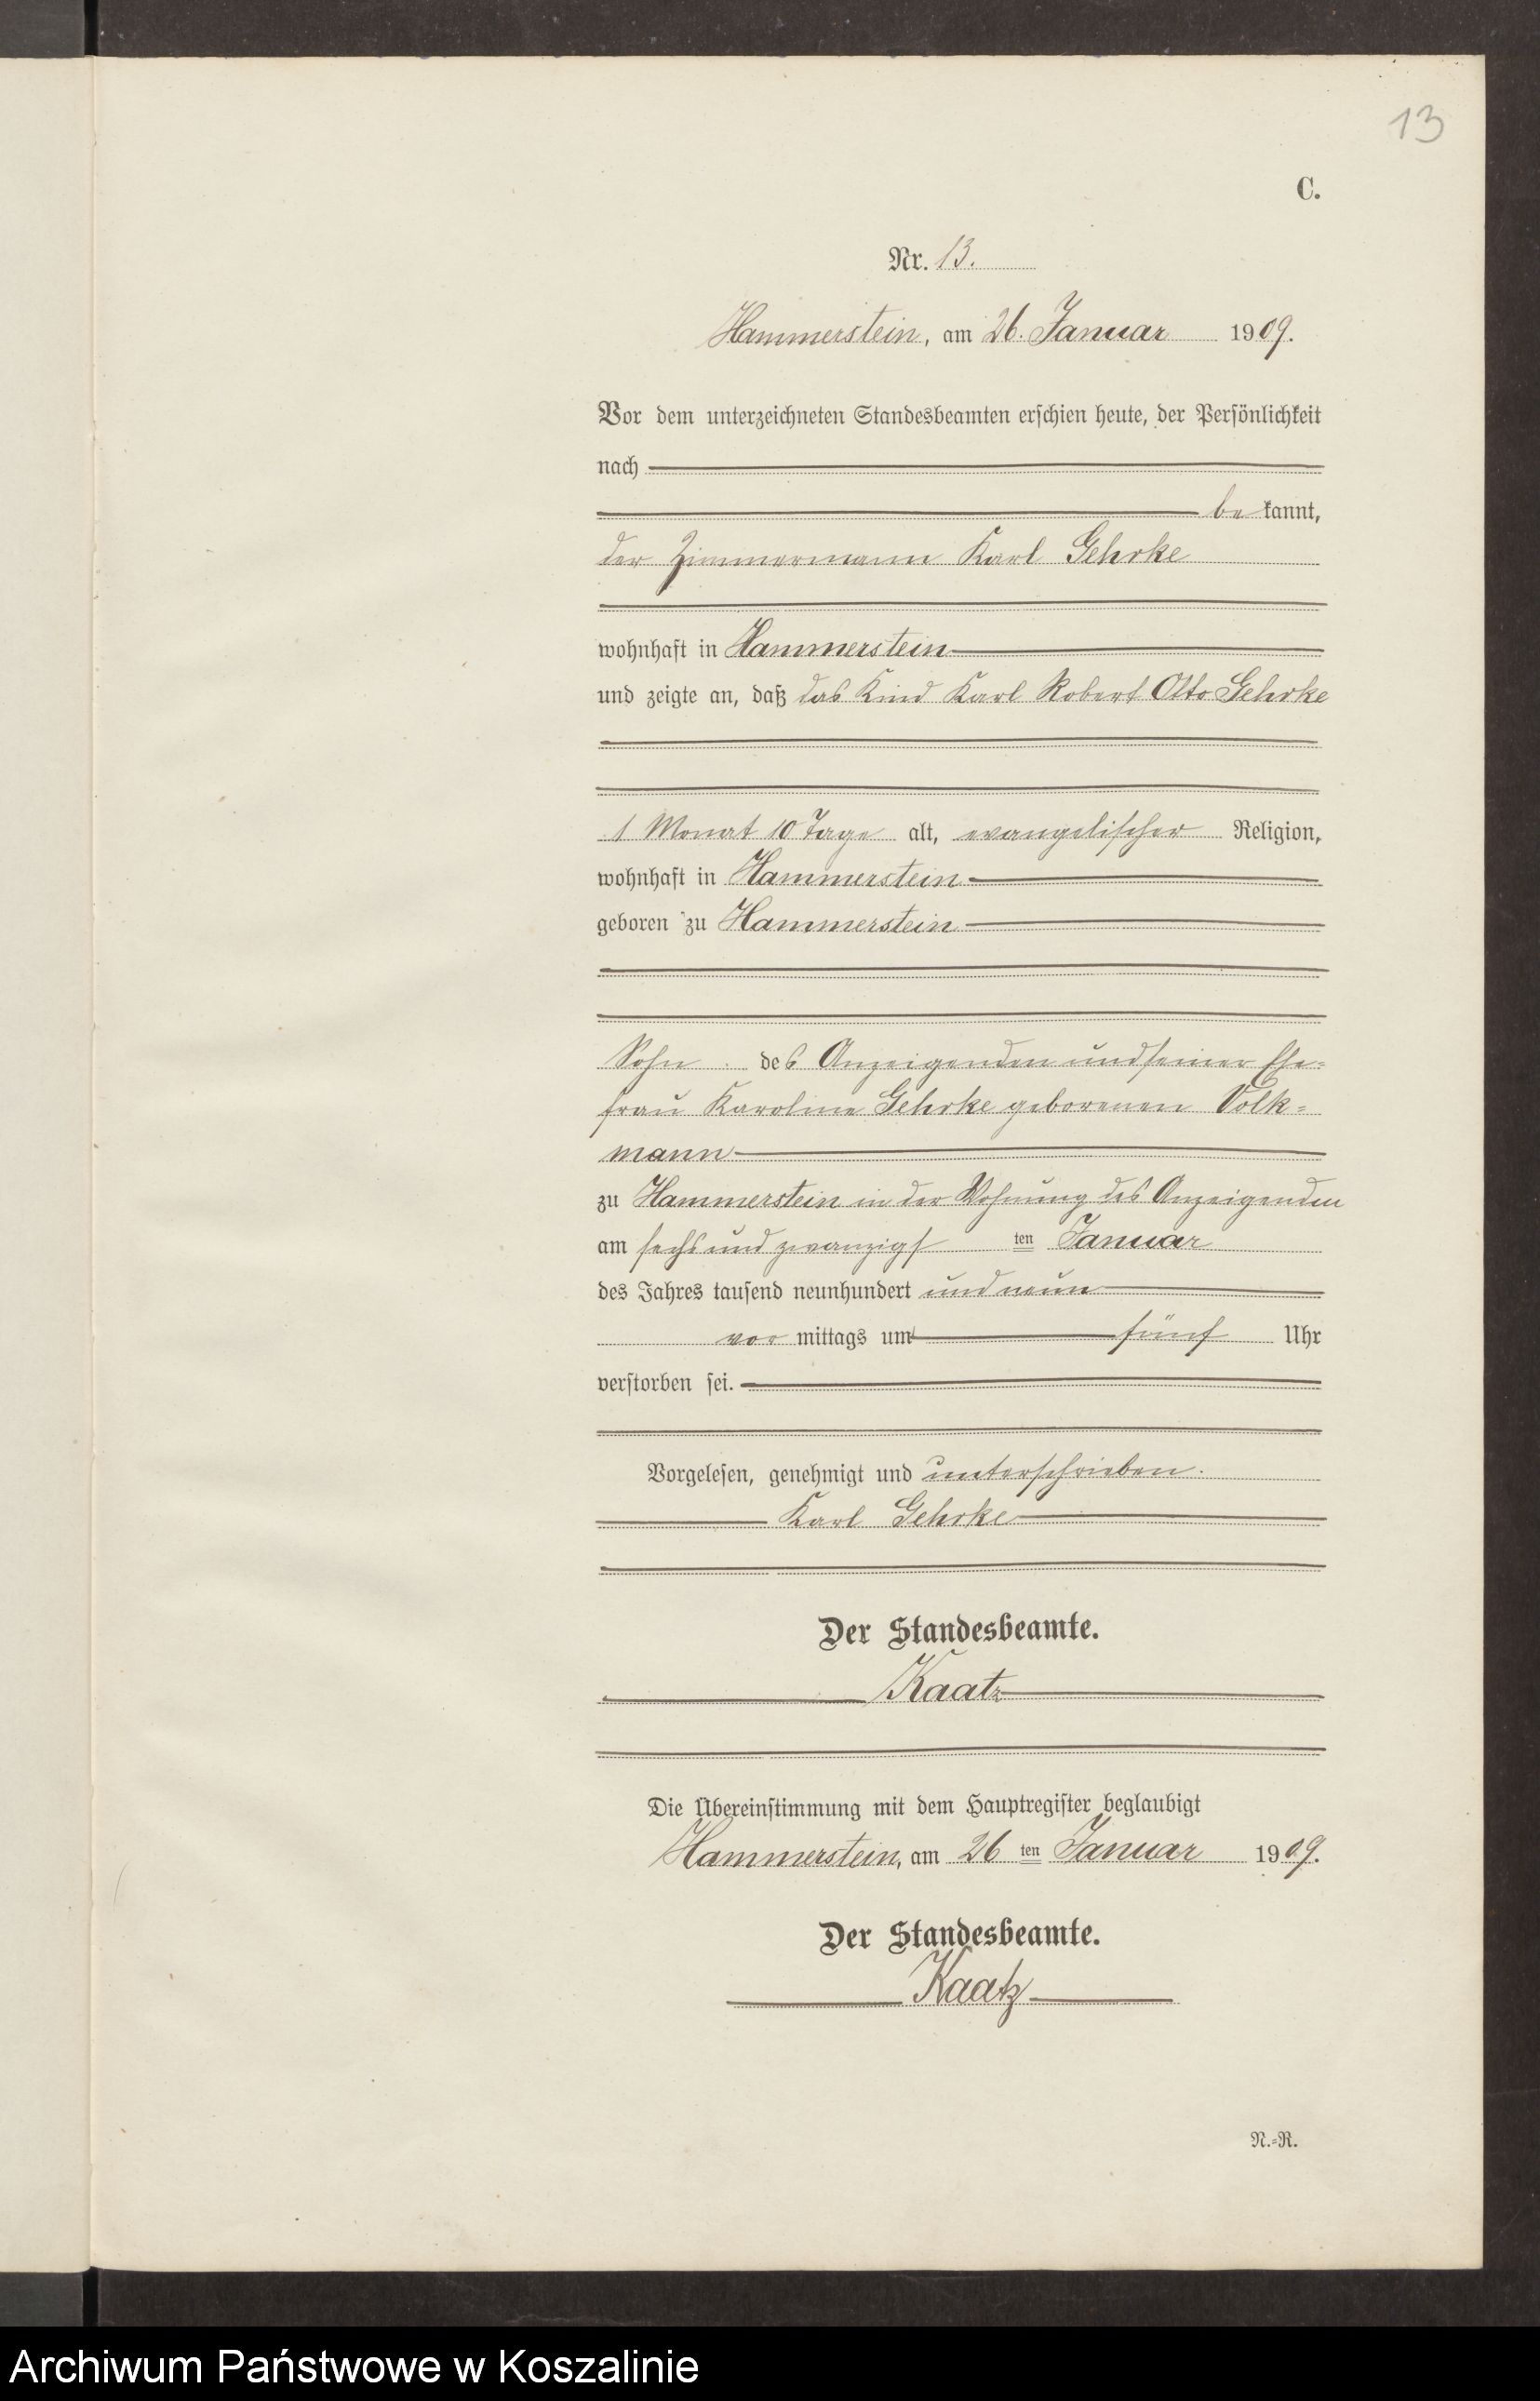 13
C.
Nr. 13.
Hammerstein, am 26. Januar 1909.
Vor dem unterzeichneten Standesbeamten erschien heute, der Persönlichkeit
nach
be kannt,
der Zimmermann Karl Gehrke
wohnhaft in Hammerstein
und zeigte an, daß das Kind Karl Robert Otto Gehrke
1 Monat 10 Tage alt, evangelischer Religion,
wohnhaft in Hammerstein
geboren zu Hammerstein
Sohn des Anzeigenden und seiner Ehe-
frau Karoline Gehrke geborenen Volk-
mann
zu Hammerstein in der Wohnung des Anzeigenden
am sechs und zwanzigs ten Januar
des Jahres tausend neunhundert und neun
vor mittags um fünf Uhr
verstorben sei.
Vorgelesen, genehmigt und unterschrieben.
Karl Gehrke
Der Standesbeamte.
Kaatz
Die Übereinstimmung mit dem Hauptregister beglaubigt
Hammerstein, am 26 ten Januar 1909.
Der Standesbeamte.
Kaatz
N.-R.
Archiwum Państwowe w Koszalinie